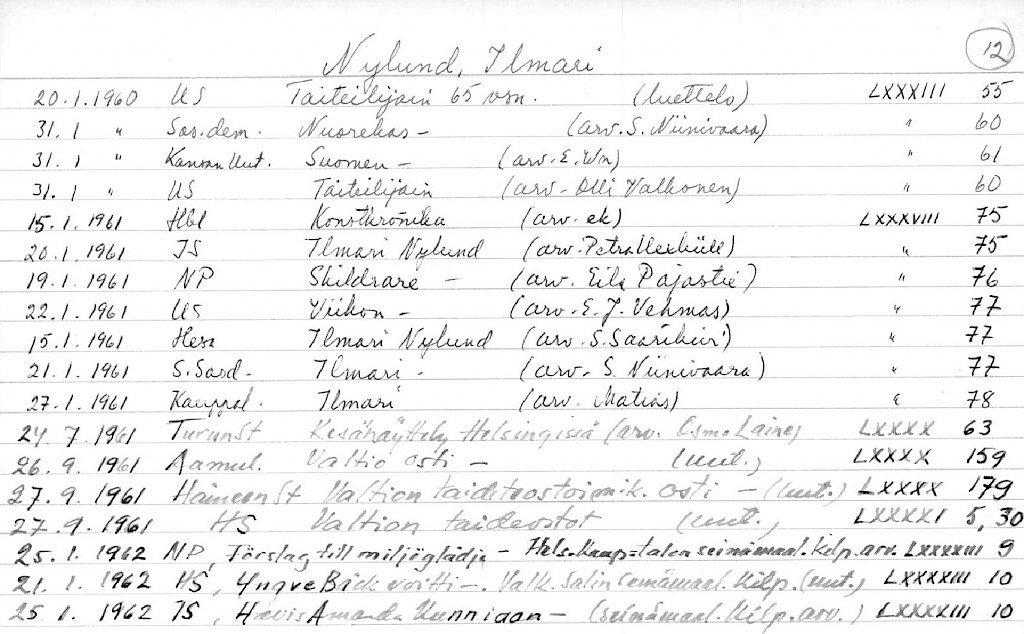 12
Nylund, Ilmari
20.1.1960 US Taiteilijain 65 vsn. (luettelo) LXXXIII 55
31.1 " Sos.dem. Nuorekas - (arv. S. Niinivaara) " 60
31.1 " Kansan Uut. Suomen - (arv. E. Wn) " 61
31.1 " US Taiteilijain (arv. Olli Valkonen) " 60
15.1.1961 Hbl Konstkrönika (arv. ek) LXXXVIII 75
20.1.1961 IS Ilmari Nylund (arv. Petra Uexküll) " 75
19.1.1961 NP Skildrare - (arv. Eila Pajastie) " 76
22.1.1961 US Viikon - (arv. E.J. Vehmas) " 77
15.1.1961 Hesa Ilmari Nylund (arv. S. Saarikivi) " 77
21.1.1961 S.Sosd. Ilmari - (arv. S. Niinivaara) " 77
27.1.1961 Kauppal. Ilmari (arv. Matias) " 78
24.7.1961 TurunSt Kesänäyttely Helsingissä (arv. Osmo Laine) LXXXX 63
26.9.1961 Aamul. Valtio osti - (uut.) LXXXX 159
27.9.1961 HämeenSt Valtion taideteostoimik. osti - (uut.) LXXXX 179
27.9.1961 HS Valtion taideostot (uut.) LXXXXI 5, 30
25.1.1962 NP, Förslag till miljöglädje - Hels. Kaup-talon seinämaal. kilp. arv. LXXXXIII 9
21.1.1962 HS, Yngve Bäck voitti - Valk. Salin seinämaal. kilp. (uut.) LXXXXIII 10
25.1.1962 IS, Havis Amanda Kunniaan - (seinämaal. kilp. arv.) LXXXXIII 10